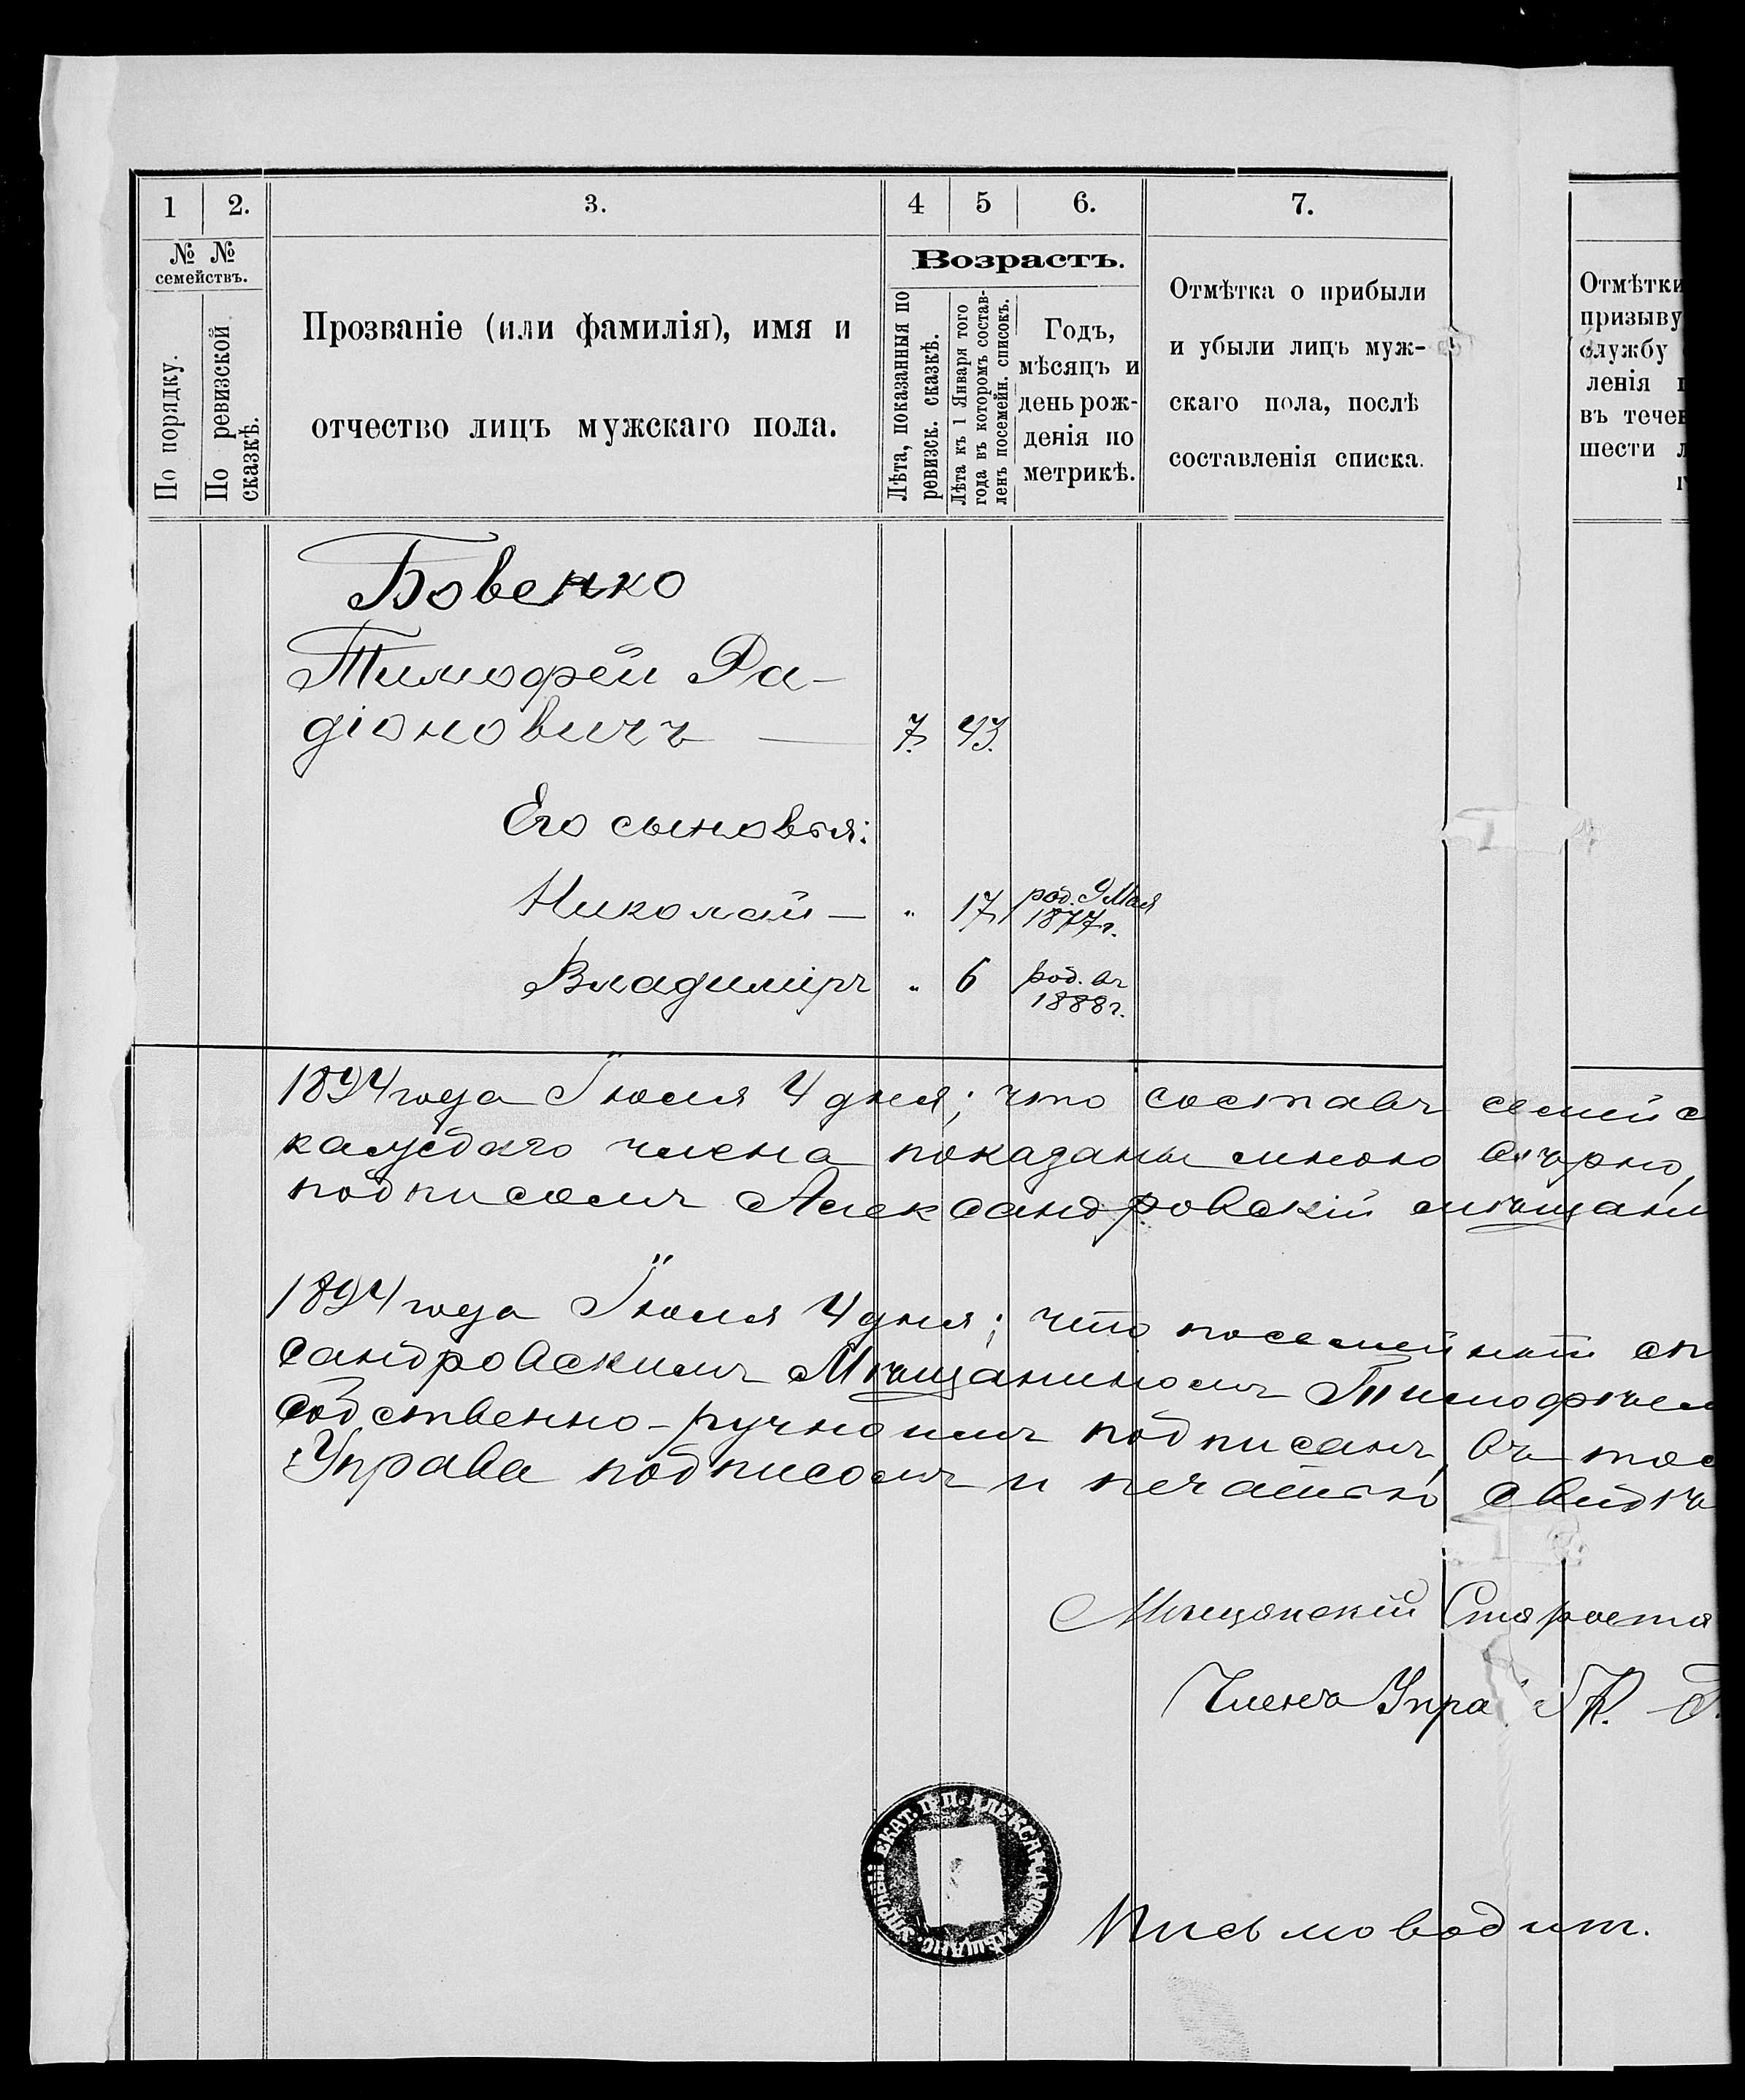 1 2. 3. 4 5 6. 7.
№ № семействъ.
По порядку.
По ревизской сказкѣ.
Прозваніе (или фамилія), имя и
отчество лицъ мужскаго пола.
Возрастъ.
Лѣта, показанныя по
ревизск. сказкѣ.
Лѣта къ 1 Января того
года въ которомъ состав-
ленъ посемейн. списокъ.
Годъ,
мѣсяцъ и
день рож-
денія по
метрикѣ.
Отмѣтка о прибыли
и убыли лицъ муж-
скаго пола, послѣ
составленія списка.
Отмѣтки
призыву
службу
ленія
въ течен
шести
Бовенко
Тимофей Ра-
діоновичъ — 7. 43.
Его сыновья:
Николай — " 17 род. 9 Мая
1877 г.
Владиміръ " 6 род. въ
1888 г.
1894 года Іюля 4 дня; что составъ семейс
каждаго члена показаны мною вѣрно,
подписомъ Александровскій мѣщани
1894 года Іюля 4 дня; что посемейный сп
сандровскимъ Мѣщаниномъ Тимофѣем
собственно-ручно имъ подписанъ, въ том
Управа подписомъ и печатью свидѣ
Мѣщанскій Староста
Члены Упра
Письмоводит.
ЕКАТ. ГУП. АЛЕКСАНДРОВ. МѢЩАНС. УПРАВЫ